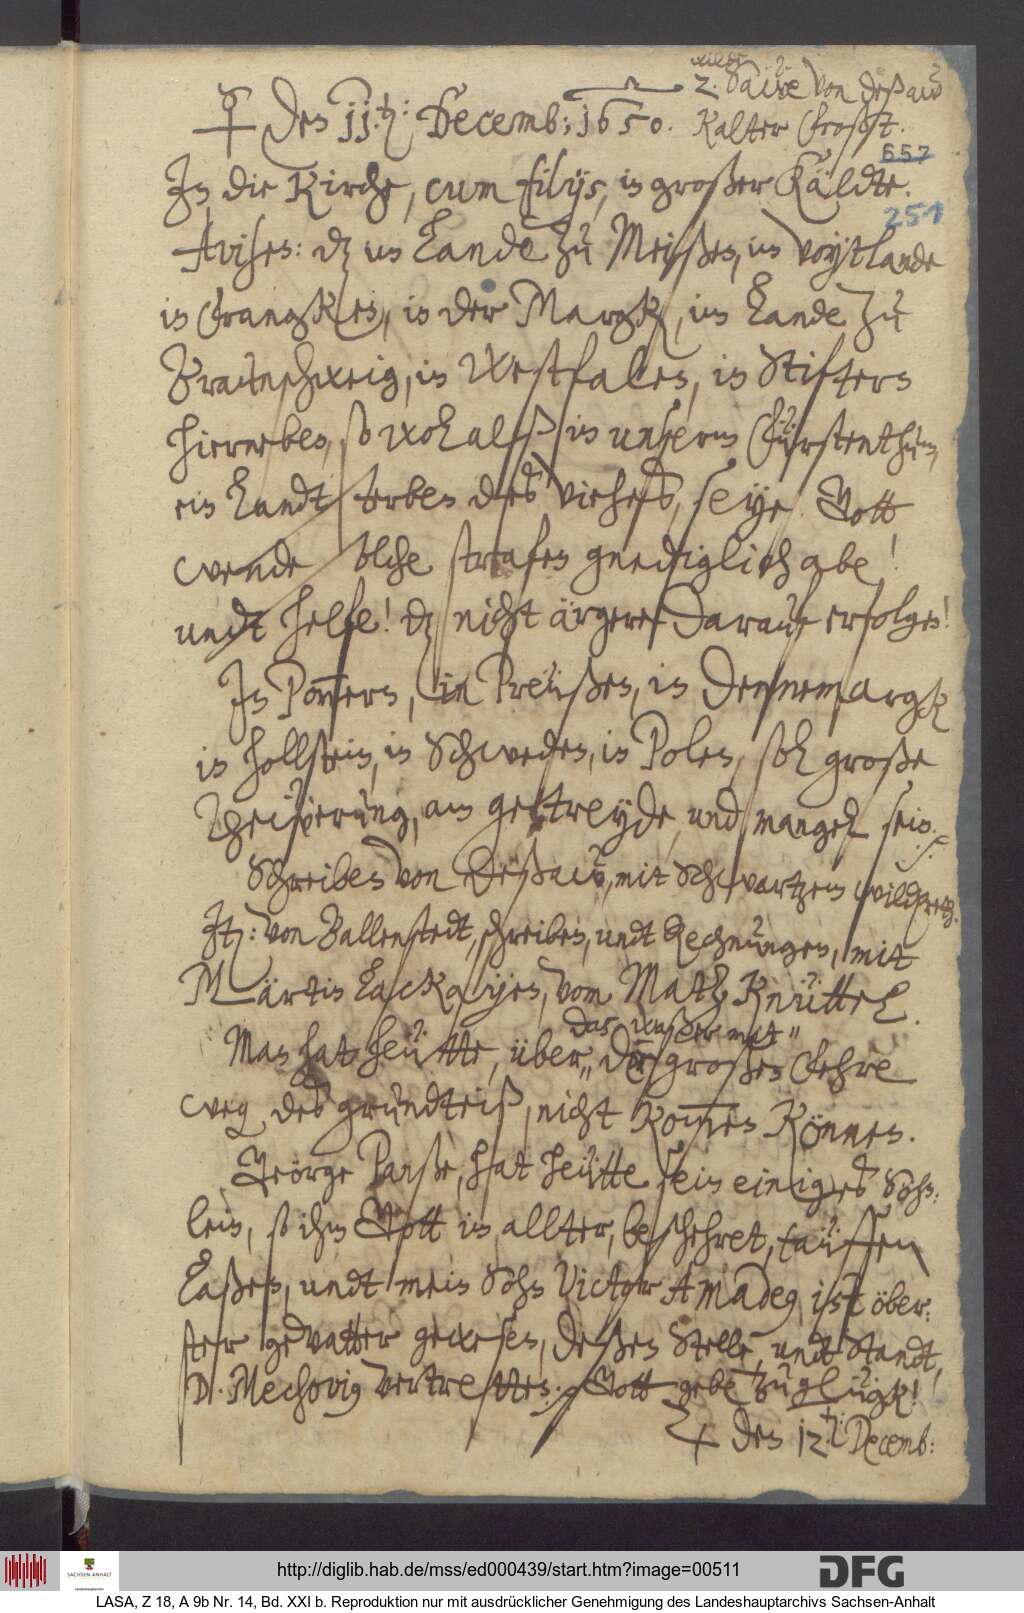 wilde
2. Säwe von Deßaw
☿ Den 11.ten: Decemb: 1650.
Kalter Frost.
657
251
In die Kirche, cum filijs, in großer Käldte.
Avisen: dz im Lande zu Meißen, im Voytlande
in Francken, in der Margk, im Lande zu
Braunschweig, in Westfalen, in Stiftern
hierneben, so wol alß in unserm Fürstenthum,
ein Landt sterben des viehes, seye. Gott
wende solche strafen gnediglich abe!
undt helfe! dz nicht ärgeres darauf erfolge!
In Pommern, in Preüßen, in Dennemargk
in Hollstein, in Schweden, in Polen, sol große
Theüerung, am getreyde, und mangel sein.
Schreiben von Deßaw, mit Schwartzem wildpret.
Item: von Ballenstedt, schreiben, undt Rechnungen, mit
Märtin Lackayen, vom Matz Knüttel.
das waßer mit
Man hat heütte, über die großen Fehre
weg des grundteiß, nicht kommen können.
Geörge Panße, hat heütte sein einiges Söhn-
lein, so ihm Gott im allter, beschehret, taüffen
Laßen, undt mein Sohn Victor Amadeus, ist öber-
ster gevatter gewesen, deßen Stelle undt Standt,
D. Mechovius vertretten: Gott gebe zu glügk!
♃ den 12.ten: Decemb:
http://diglib.hab.de/mss/ed000439/start.htm?image=00511
SACHSEN-ANHALT
DFG
LASA, Z 18, A 9b Nr. 14, Bd. XXI b. Reproduktion nur mit ausdrücklicher Genehmigung des Landeshauptarchivs Sachsen-Anhalt